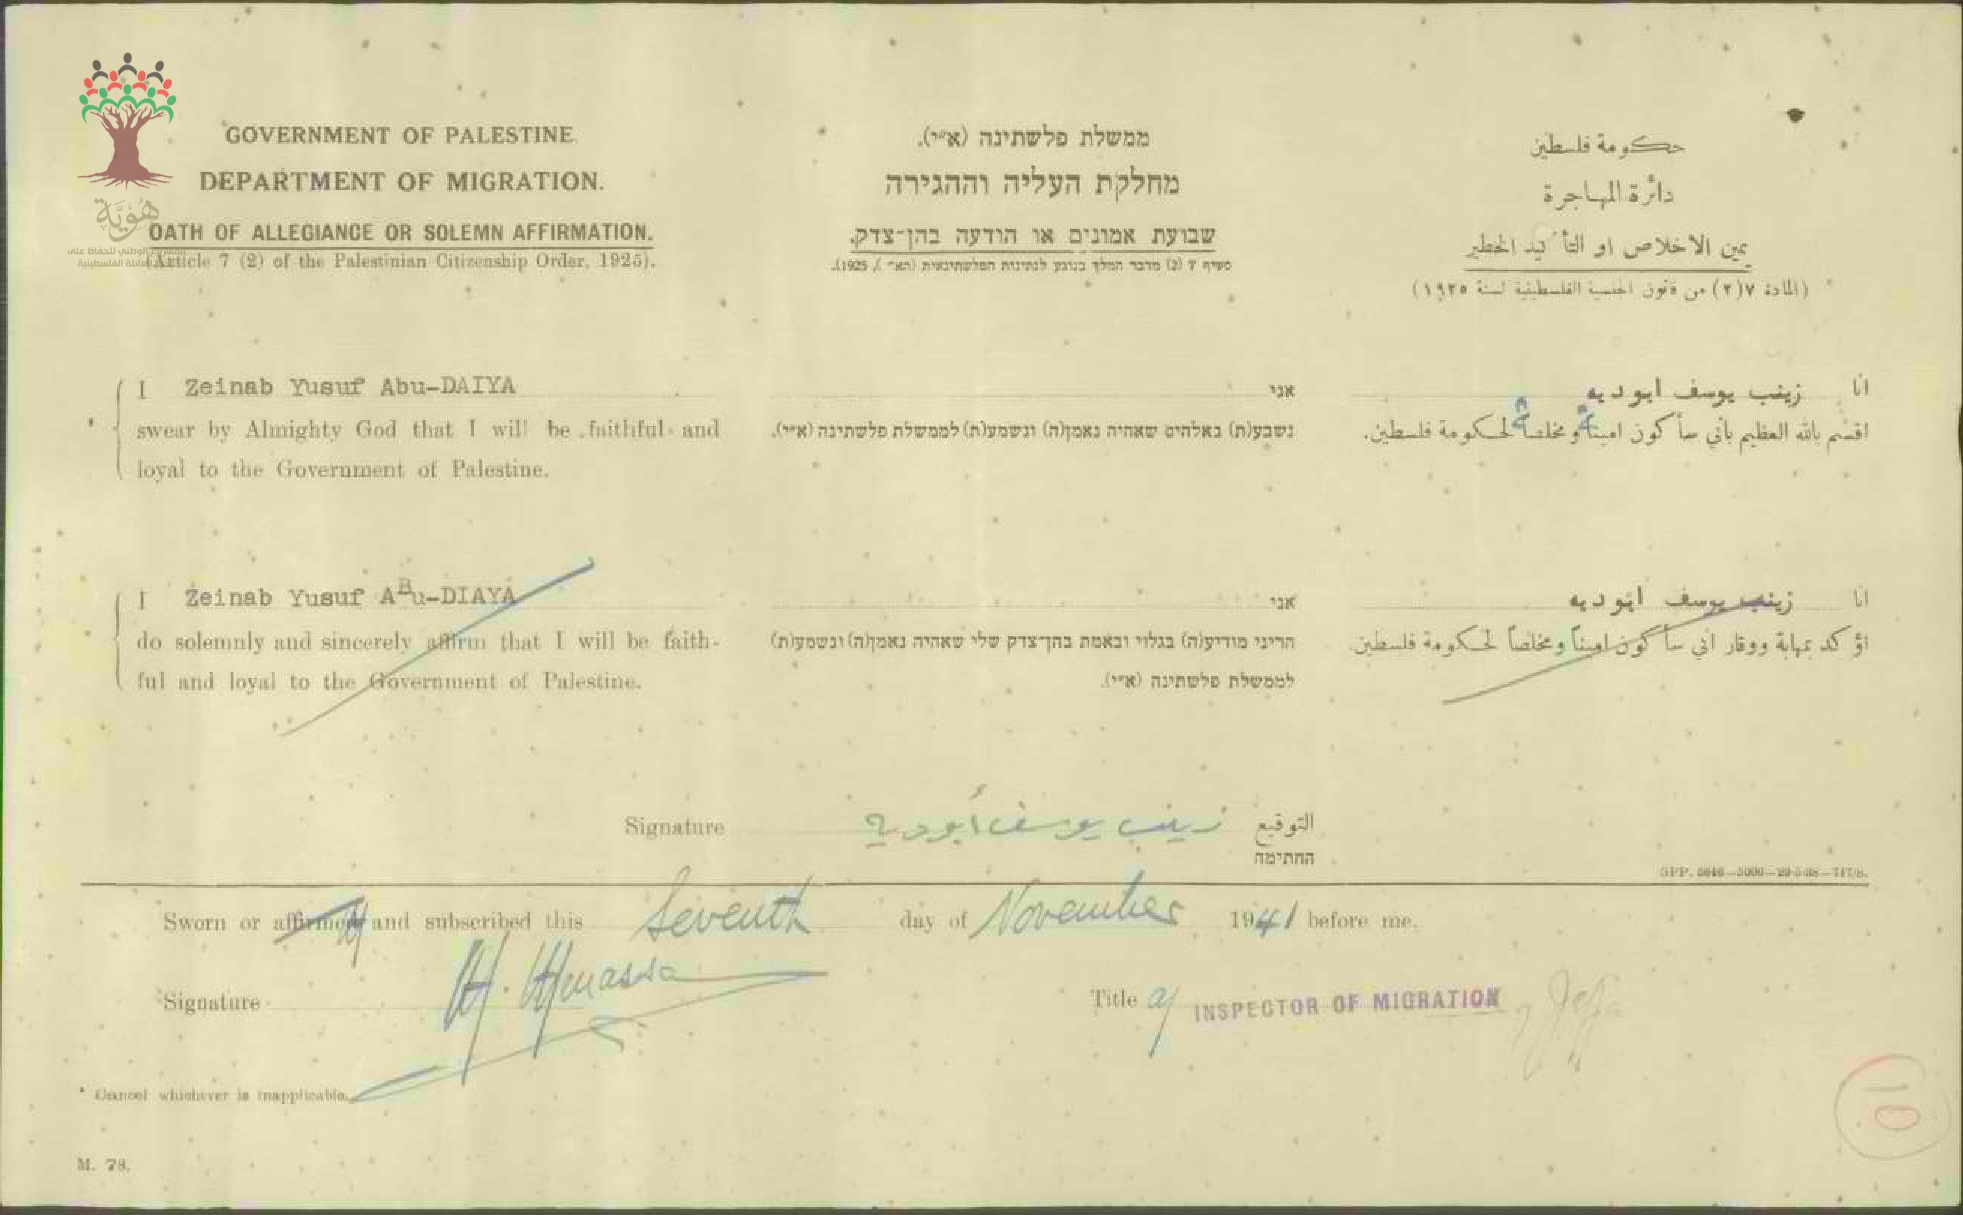 GOVERNMENT OF PALESTINE.
DEPARTMENT OF MIGRATION.
OATH OF ALLEGIANCE OR SOLEMN AFFIRMATION.
(Article 7 (2) of the Palestinian Citizenship Order, 1925).
ממשלת פלשתינה (א״י).
מחלקת העליה וההגירה
שבועת אמונים או הודעה בהן־צדק.
סעיף 7 (2) מדבר המלך בנוגע לנתינות הפלשתינאית (הא״י), 1925.
حكومة فلسطين
دائرة المهاجرة
يمين الاخلاص او التأكيد الخطير
(المادة ٧(٢) من قانون الجنسية الفلسطينية لسنة ١٩٢٥)
هُوِيَّة
المشروع الوطني للحفاظ على
العائلة الفلسطينية
* I Zeinab Yusuf Abu-DAIYA
swear by Almighty God that I will be faithful and
loyal to the Government of Palestine.
אני
נשבע(ת) באלהים שאהיה נאמן(ה) ונשמע(ת) לממשלת פלשתינה (א״י).
انا زينب يوسف ابو ديه
اقسم بالله العظيم بأني سأكون امينة ومخلصة لحكومة فلسطين.
I Zeinab Yusuf ABu-DIAYA
do solemnly and sincerely affirm that I will be faith-
ful and loyal to the Government of Palestine.
אני
הריני מודיע(ה) בגלוי ובאמת בהן־צדק שלי שאהיה נאמן(ה) ונשמע(ת)
לממשלת פלשתינה (א״י).
انا زينب يوسف ابو ديه
اؤكد بمهابة ووقار اني سأكون اميناً ومخلصاً لحكومة فلسطين.
Signature زينب يوسف أبو دية التوقيع
החתימה
GPP. 5646—5000—29-5-38—717/8.
Sworn or affirmed and subscribed this Seventh day of November 1941 before me.
Signature
Title a/ INSPECTOR OF MIGRATION
* Cancel whichever is inapplicable.
M. 78.